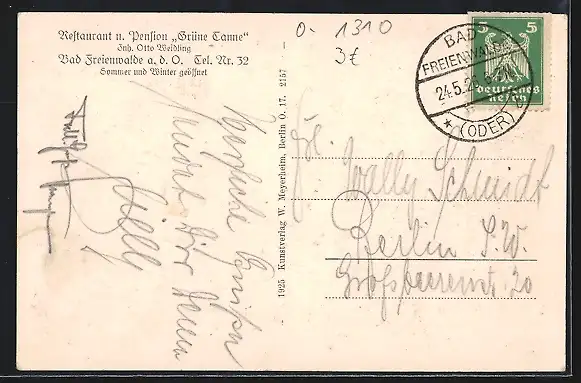 Restaurant u. Pension „Grüne Tanne"
Inh. Otto Weidling
Bad Freienwalde a. d. O. Tel. Nr. 32
Sommer und Winter geöffnet
o- 1310
3€
5 5
Deutsches
Reich
BAD
FREIENWALDE
24.5.2
* (ODER)
1925 Kunstverlag W. Meyerheim, Berlin O. 17. 2157
Herzliche Grüße
sendet Dir Deine
Frl. Wally Schmidt
Berlin S.W.
Großbeerenstr. 20